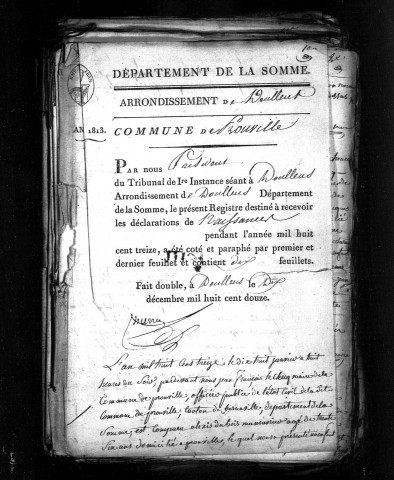 DÉPARTEMENT DE LA SOMME.
ARRONDISSEMENT DE Doullens
AN 1813. COMMUNE DE Prouville
PAR nous Président
du Tribunal de Ire Instance séant à Doullens
Arrondissement de Doullens Département
de la Somme, le présent Registre destiné à recevoir
les déclarations de Naissances
pendant l'année mil huit
cent treize, a été coté et paraphé par premier et
dernier feuillet et contient dix feuillets.
Fait double, à Doullens le Dix
décembre mil huit cent douze.
L'an mil huit cent treize, le dix huit janvier a huit
heures du Soir, pardevant nous françois le Clercq maire de la
Commune de prouville, officier public de l'état Civil de la dit
Commune de prouville, canton de bernaville, département de la
Somme, est comparu alexis du bois manouvrier agé de trente
Six ans domicilié a prouville, lequel nous a présenté un enfant